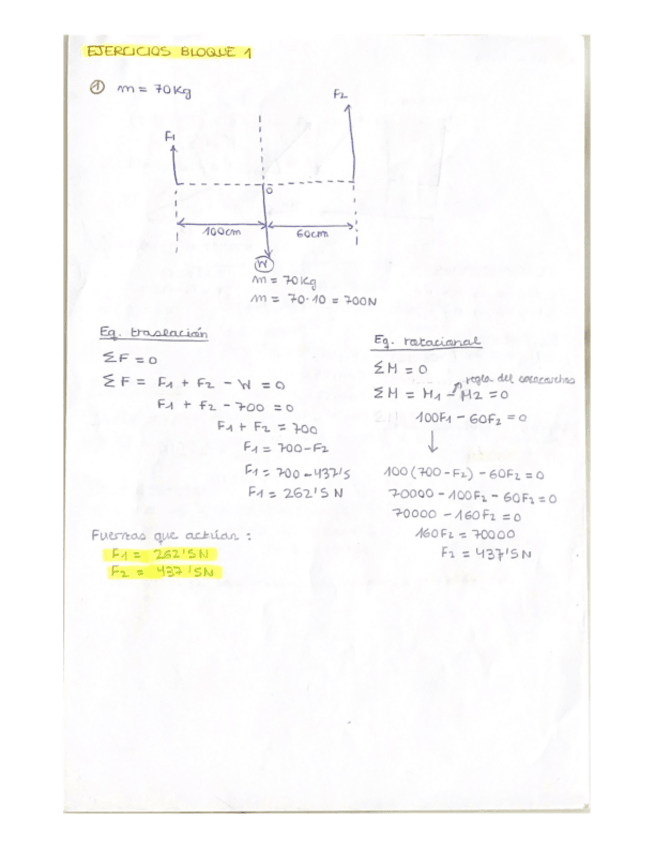 EJERCICIOS BLOQUE 1
① m = 70Kg
F2
F1
O
100cm
60cm
W
m = 70Kg
m = 70·10 = 700N
Eq. traslación
ΣF = 0
ΣF = F1 + F2 - W = 0
F1 + F2 - 700 = 0
F1 + F2 = 700
F1 = 700 - F2
F1 = 700 - 437'5
F1 = 262'5 N
Eq. rotacional
ΣM = 0
regla del sacacorchos
ΣM = M1 - M2 = 0
100F1 - 60F2 = 0
↓
100(700 - F2) - 60F2 = 0
70000 - 100F2 - 60F2 = 0
70000 - 160F2 = 0
160F2 = 70000
F2 = 437'5N
Fuerzas que actúan :
F1 = 262'5N
F2 = 437'5N